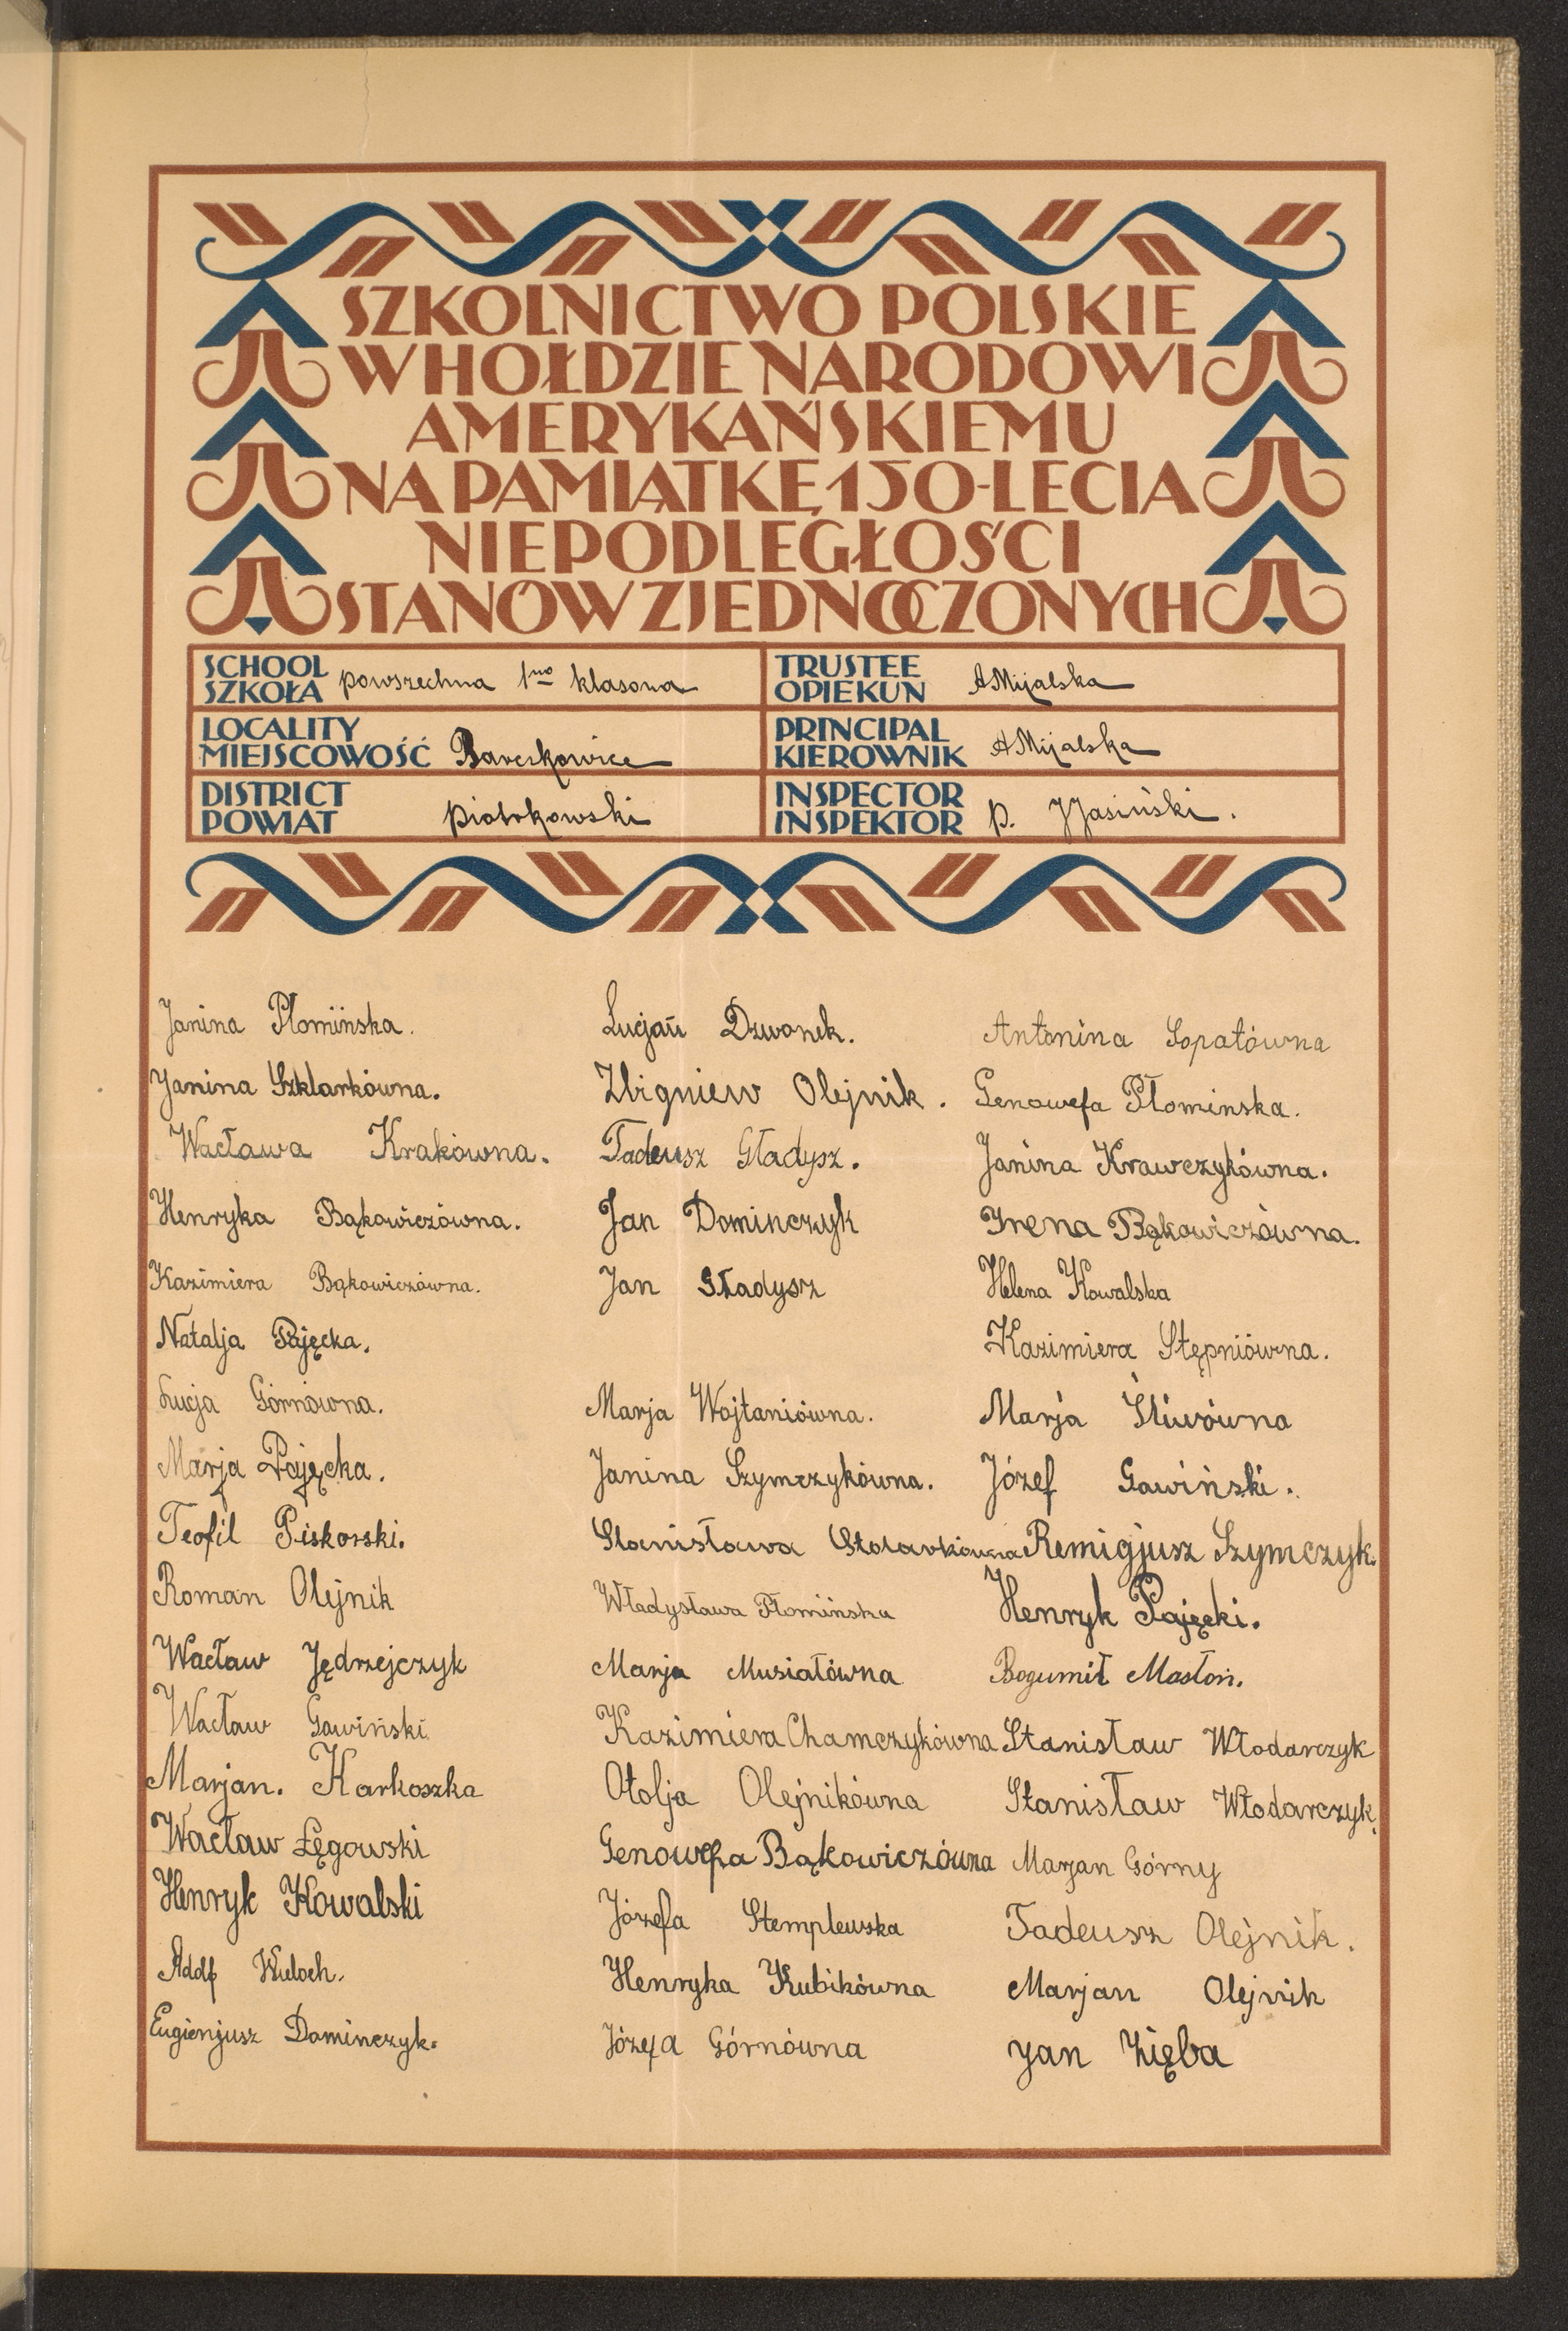 SZKOLNICTWO POLSKIE
W HOŁDZIE NARODOWI
AMERYKAŃSKIEMU
NA PAMIĄTKĘ 150-LECIA
NIEPODLEGŁOŚCI
STANÓW ZJEDNOCZONYCH
SCHOOL
SZKOŁA powszechna 1no klasowa
TRUSTEE
OPIEKUN AMijalska
LOCALITY
MIEJSCOWOŚĆ Barczkowice
PRINCIPAL
KIEROWNIK AMijalska
DISTRICT
POWIAT piotrkowski
INSPECTOR
INSPEKTOR p. JJasiński.
Janina Płomińska.
Janina Szklarkówna.
Wacława Krakówna.
Henryka Bąkowiczówna.
Kazimiera Bąkowiczówna.
Natalja Pajęcka.
Łucja Górnówna.
Marja Pajęcka.
Teofil Piskorski.
Roman Olejnik
Wacław Jędrzejczyk
Wacław Gawiński
Marjan. Karkoszka
Wacław Łęgowski
Henryk Kowalski
Adolf Wuloch.
Eugienjusz Dominczyk.
Lucjan Dzwonek.
Zbigniew Olejnik.
Tadeusz Gładysz.
Jan Dominczyk
Jan Gładysz
Marja Wojtaniówna.
Janina Szymczykówna.
Stanisława Stolarkówna
Władysława Płomińska
Marja Musiałówna
Kazimiera Chamczykówna
Otolja Olejnikówna
Genowefa Bąkowiczówna
Józefa Stemplewska
Henryka Kubikówna
Józefa Górnówna
Antonina Sopatówna
Genowefa Płominska.
Janina Krawczykówna.
Irena Bąkowiczówna.
Helena Kowalska
Kazimiera Stępniówna.
Marja Śliwówna
Józef Gawiński.
Remigjusz Szymczyk.
Henryk Pajęcki.
Bogumił Masłoń.
Stanisław Włodarczyk
Stanisław Włodarczyk.
Marjan Górny
Tadeusz Olejnik.
Marjan Olejnik
Jan Zięba